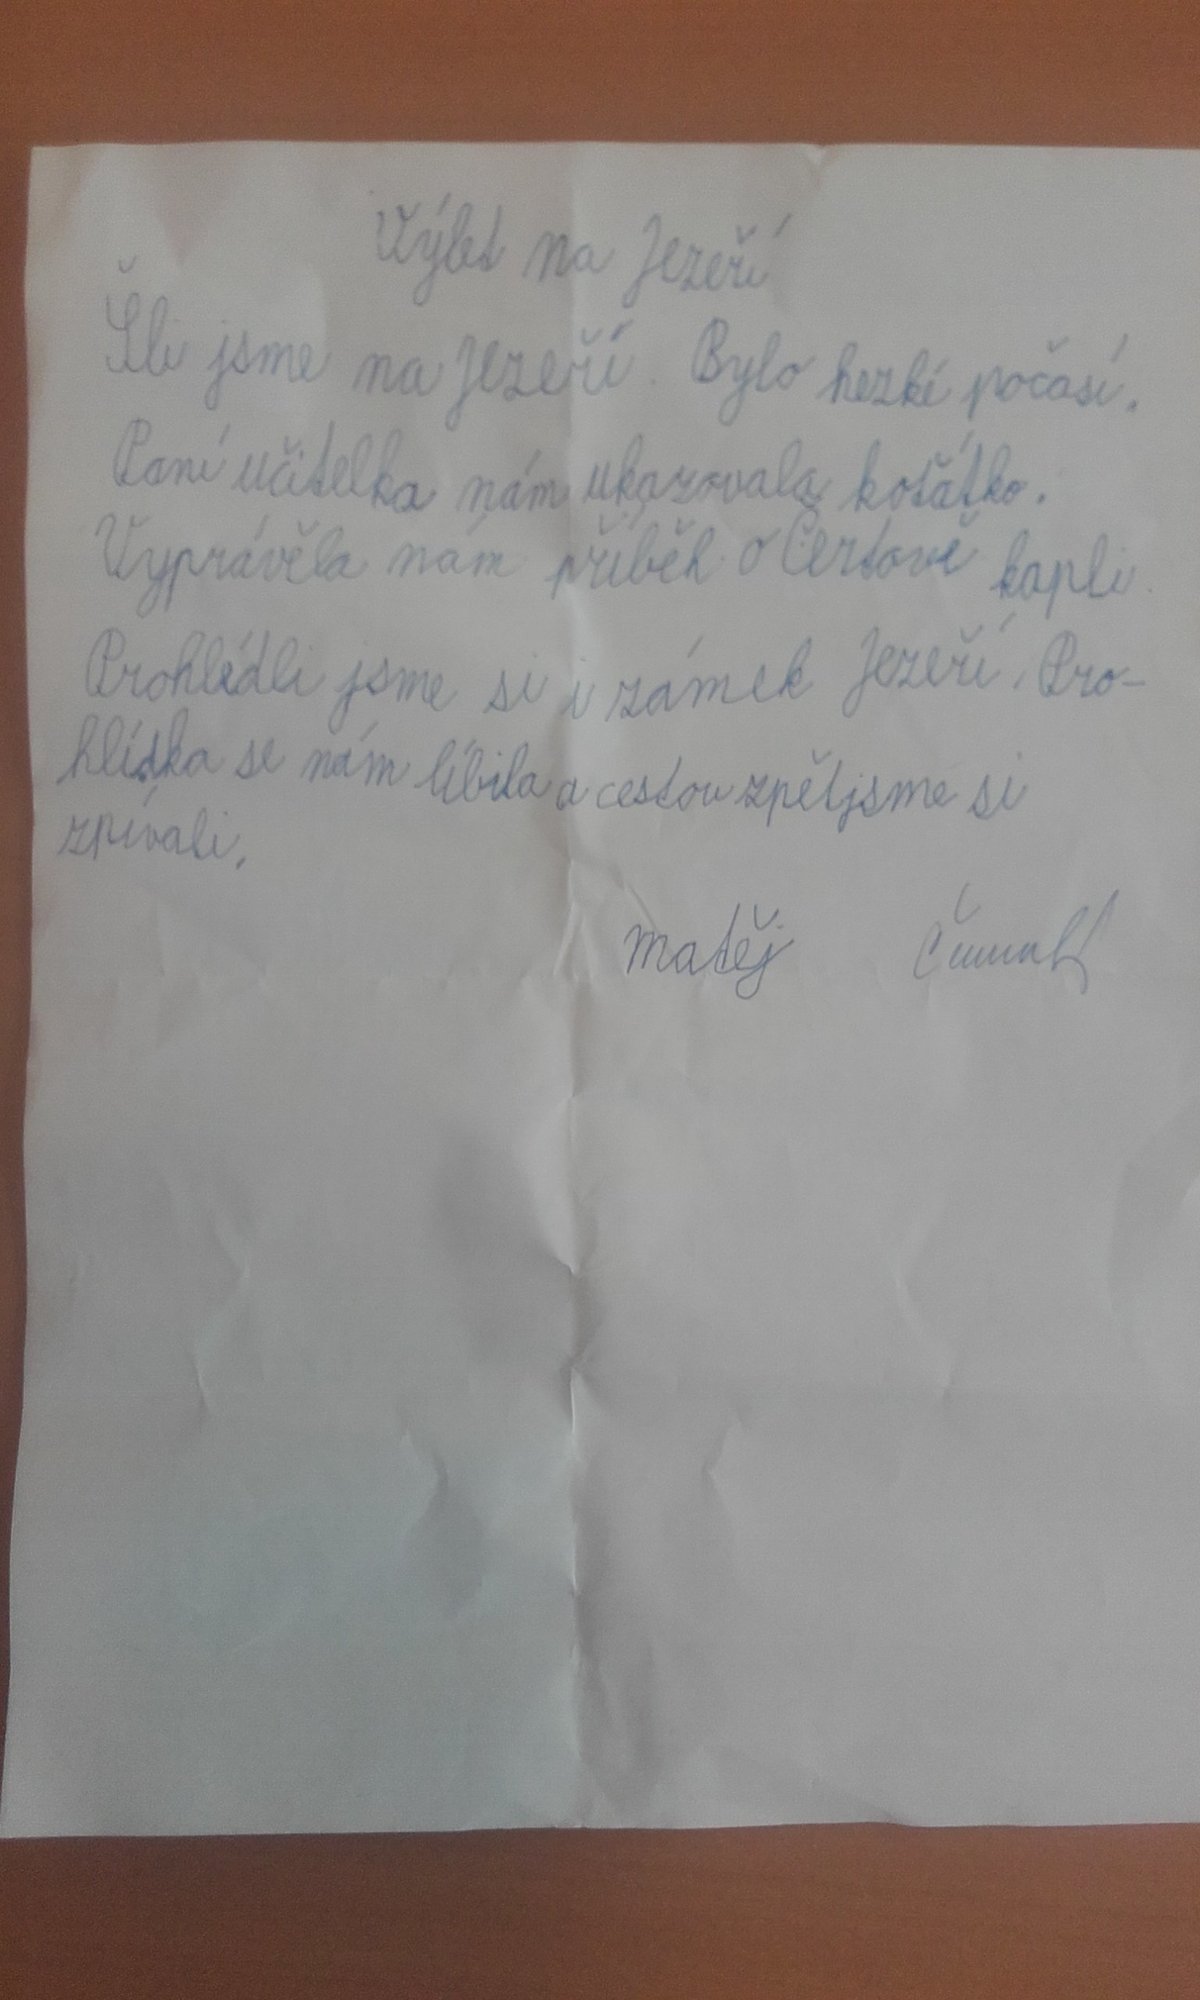 Výlet na Jezeří
Šli jsme na Jezeří. Bylo hezké počasí.
Paní učitelka nám ukazovala koťátko.
Vyprávěla nám příběh o Čertově kapli.
Prohlédli jsme si i zámek Jezeří. Pro-
hlídka se nám líbila a cestou zpět jsme si
zpívali.
Matěj